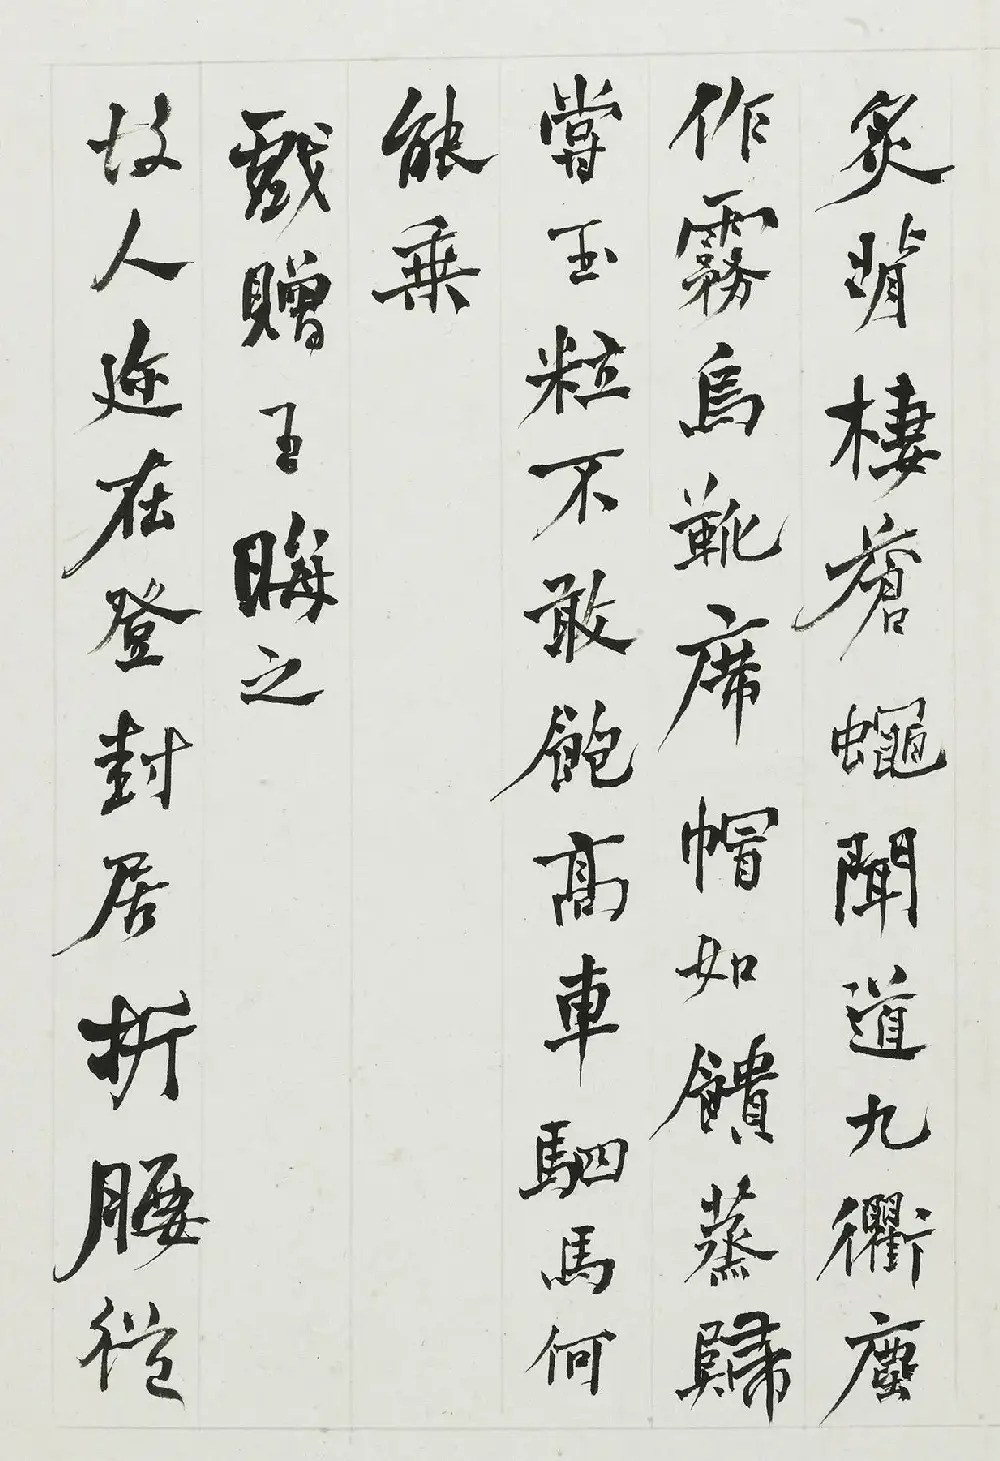 炙背棲蒼蠅聞道九衢塵
作霧烏靴席帽如饋蒸歸
嘗玉粒不敢飽高車駟馬何
能乗
戲贈王晦之
故人近在登封居折腰從